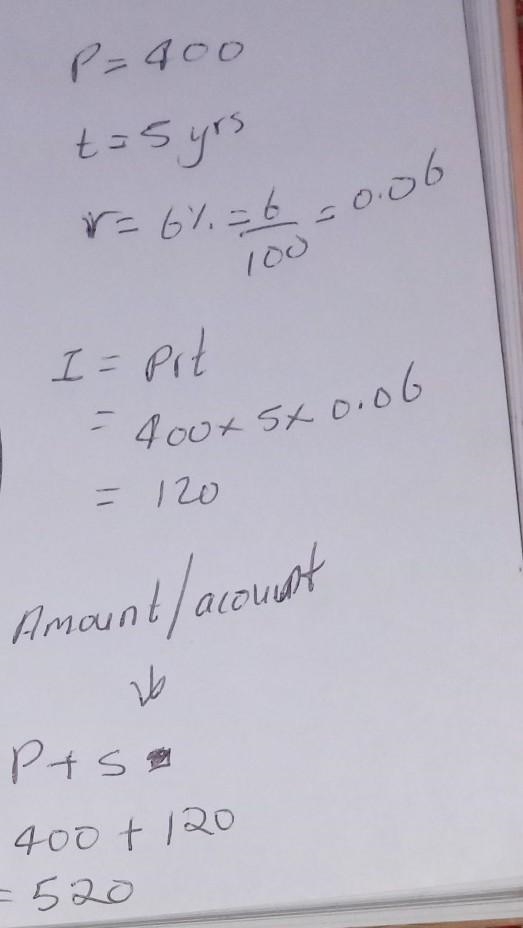 P = 400
t = 5 yrs
r = 6% = 6/100 = 0.06
I = Prt
= 400 x 5 x 0.06
= 120
Amount/acount
↓
P + S
400 + 120
= 520